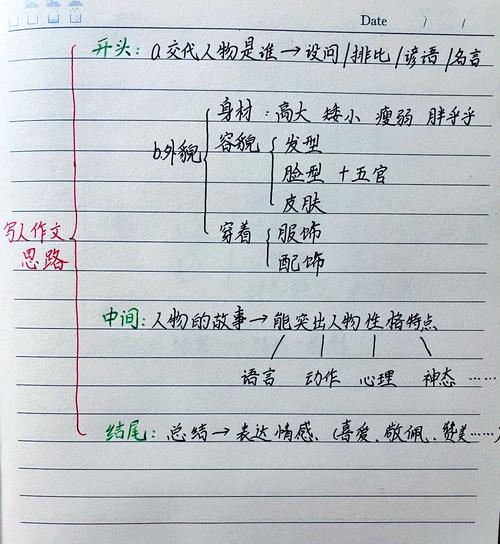 Date / /
开头：a.交代人物是谁→设问/排比/谚语/名言
身材：高大 矮小 瘦弱 胖乎乎
b.外貌 容貌 发型
脸型+五官
皮肤
穿着 服饰
配饰
写人作文
思路
中间：人物的故事→能突出人物性格特点
语言 动作 心理 神态……
结尾：总结→表达情感.（喜爱、敬佩、赞美……）